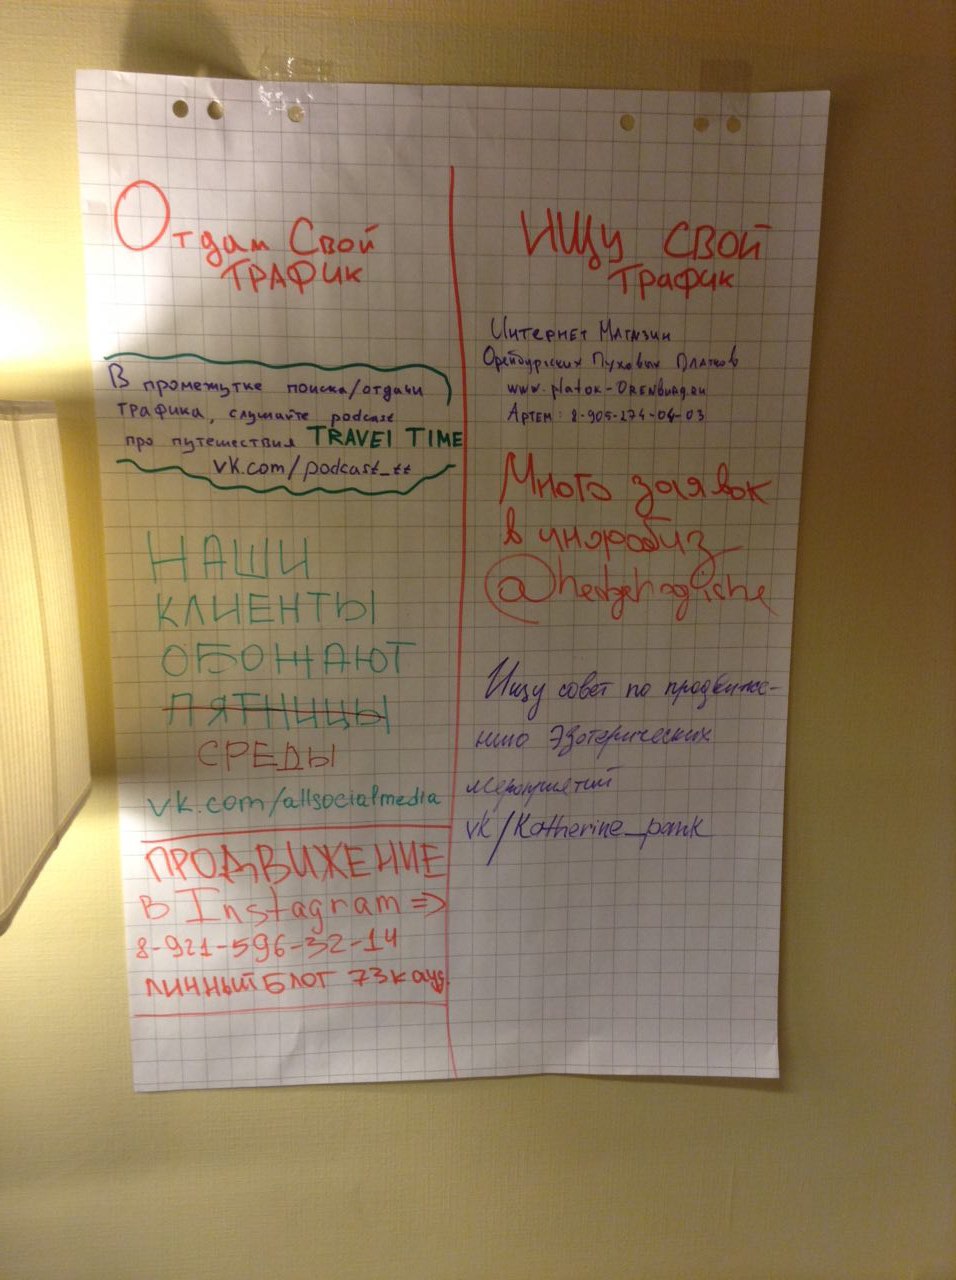 Отдам Свой
ТРАФИК
В промежутке поиска/отдачи
трафика, слушайте podcast
про путешествия TRAVEl TIME
vk.com/podcast_tt
НАШИ
КЛИЕНТЫ
ОБОЖАЮТ
ПЯТНИЦЫ
СРЕДЫ
vk.com/allsocialmedia
ПРОДВИЖЕНИЕ
в Instagram =>
8-921-596-32-14
личный блог 73к ауд.
Ищу свой
Трафик
Интернет Магазин
Оренбургских Пуховых Платков
www.platok-ORENburg.ru
Артем: 8-905-274-04-03
Много заявок
в инфобиз
Ищу совет по продвиже-
нию Эзотерических
мероприятий
vk/Katherine_pank